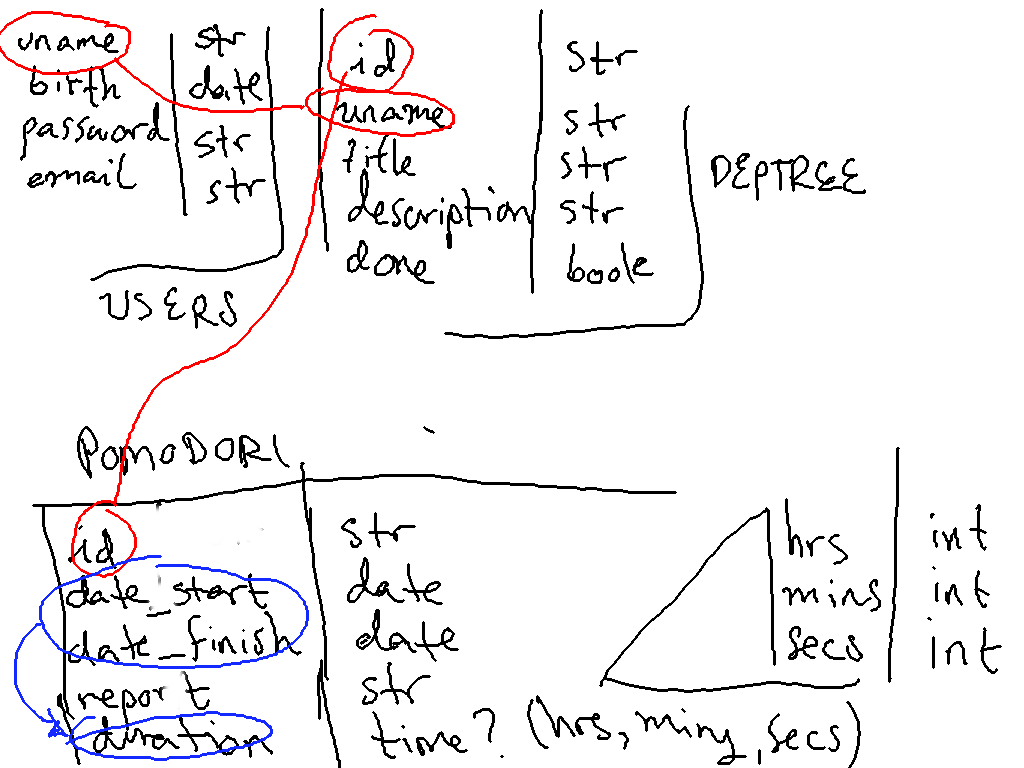 uname str
birth date
password str
email str
USERS
id str
uname str
title str
description str
done boole
DEPTREE
POMODORI
id str
date_start date
date_finish date
report str
duration time? (hrs, mins, secs)
hrs int
mins int
secs int